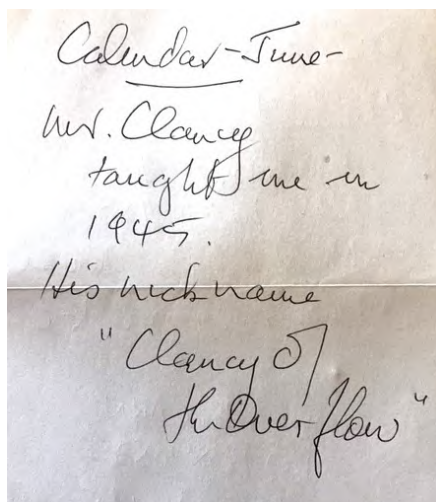 Calendar-June-
Mr. Clancy
taught me in
1945.
His nickname
"Clancy of
the Overflow"